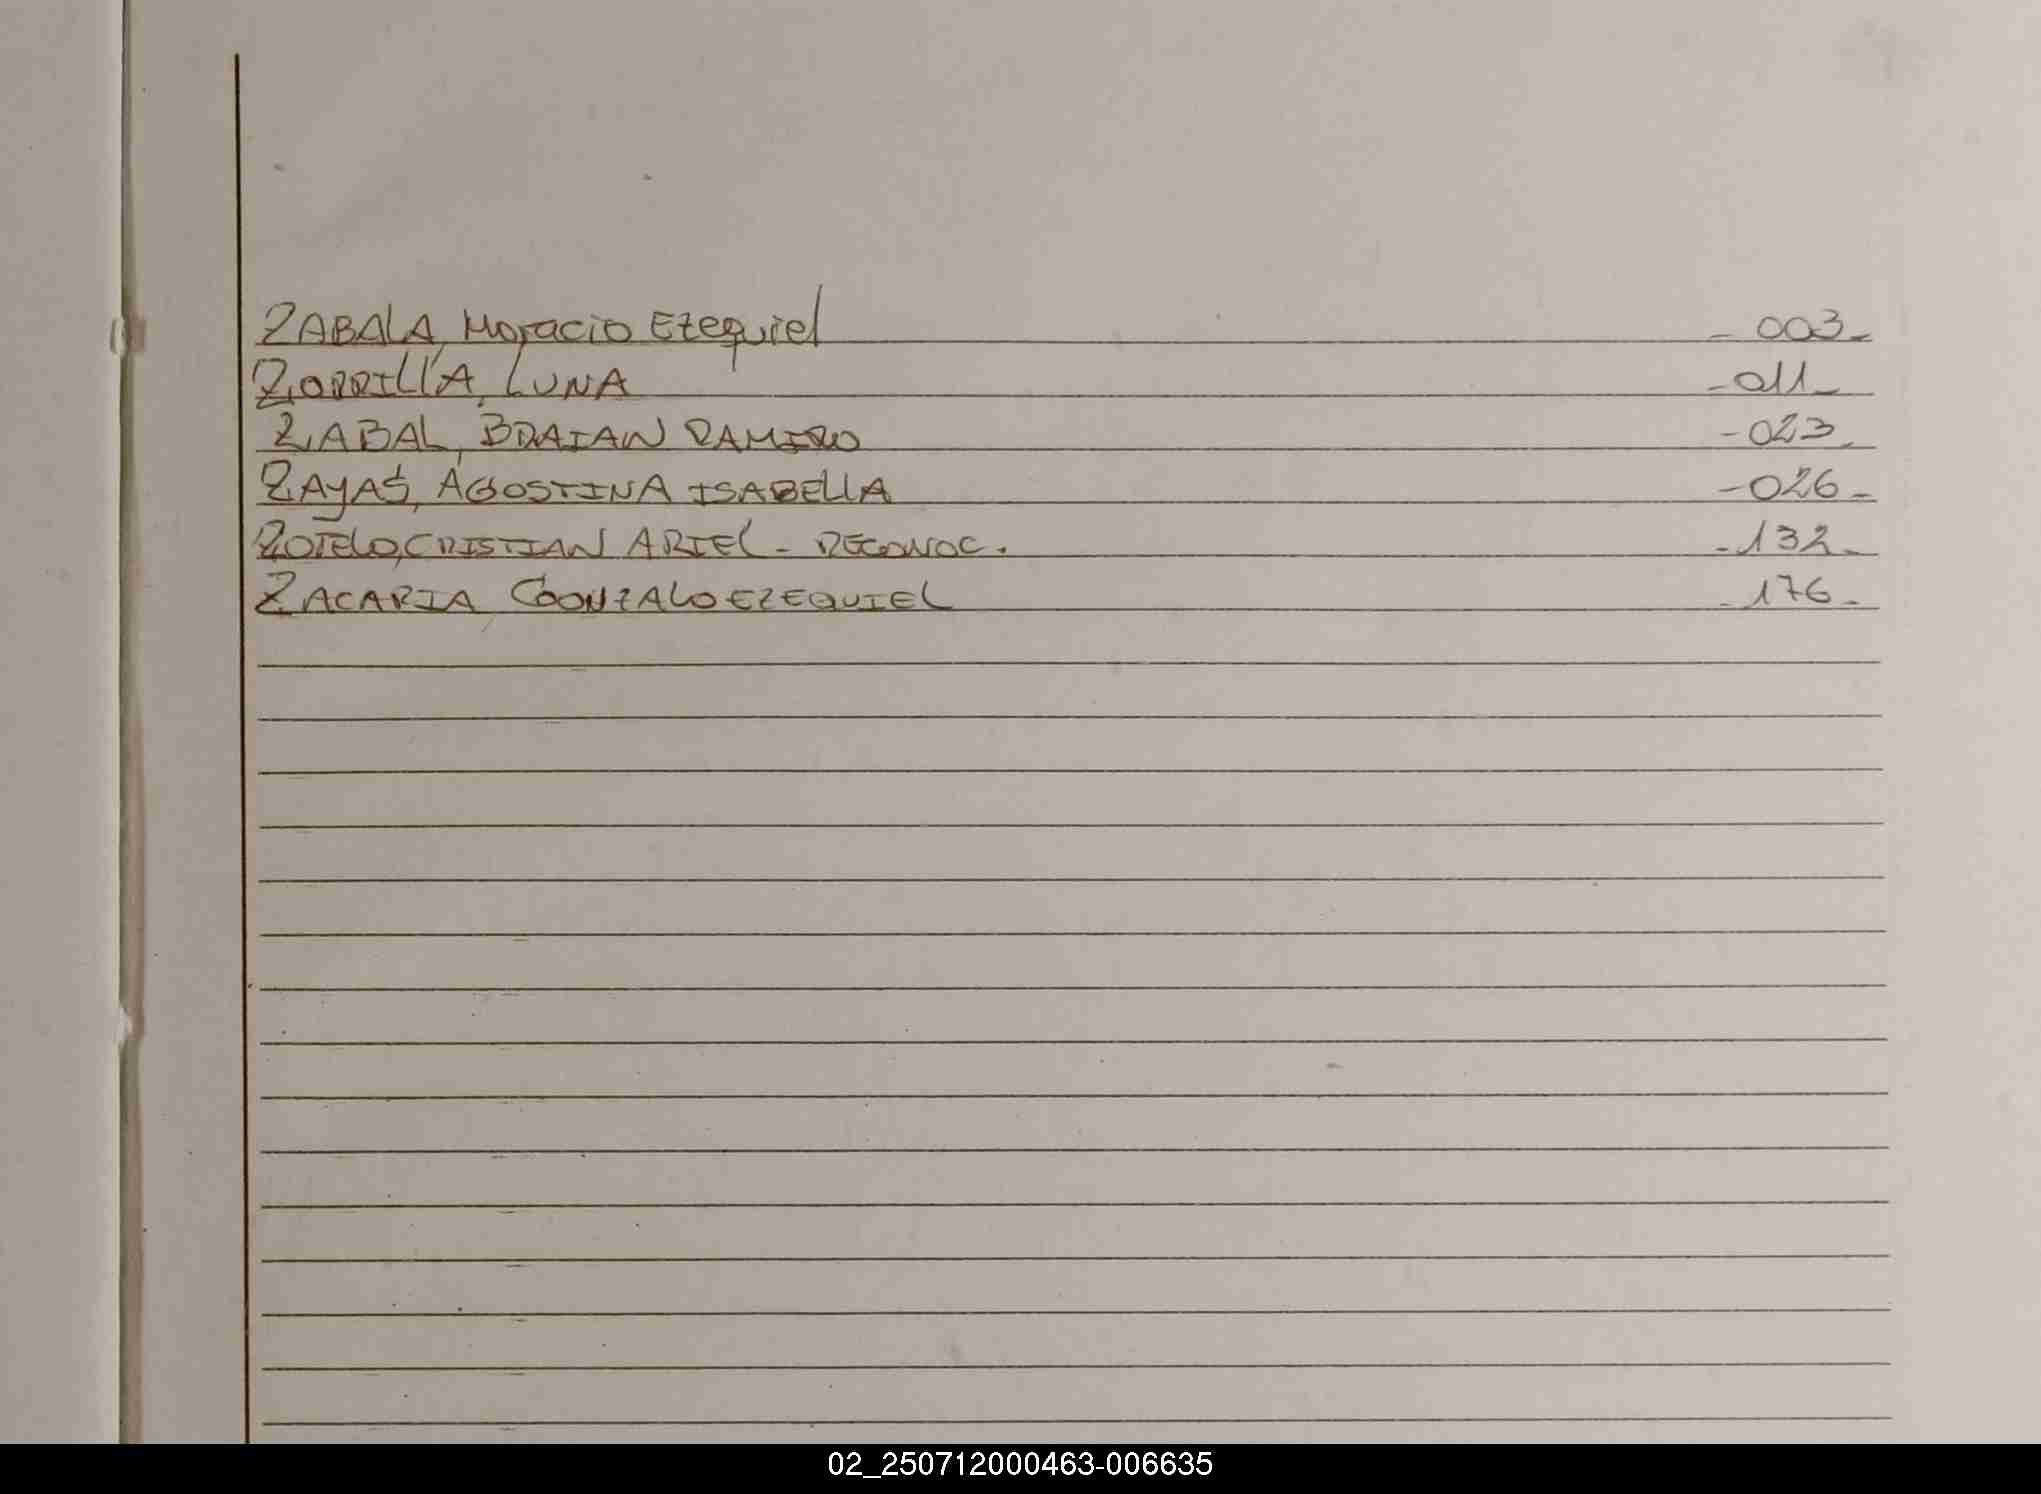 ZABALA, Horacio Ezequiel - 003 -
ZORRILLA, LUNA - 011 -
ZABAL, BRAIAN RAMIRO - 023 -
ZAYAS, AGOSTINA ISABELLA - 026 -
ZOTELO, CRISTIAN ARIEL - RECONOC. - 132 -
ZACARIA, GONZALO EZEQUIEL - 176 -
02_250712000463-006635